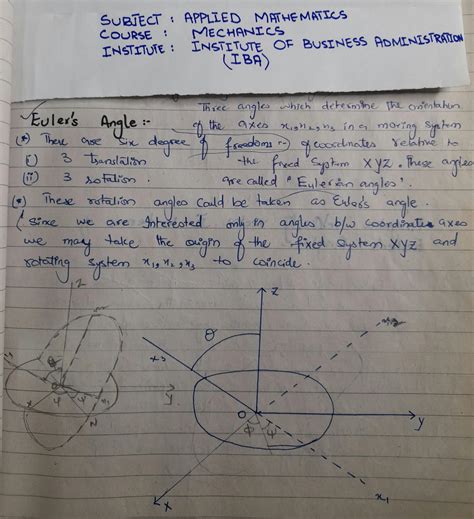 SUBJECT : APPLIED MATHEMATICS
COURSE : MECHANICS
INSTITUTE : INSTITUTE OF BUSINESS ADMINISTRATION
(IBA)
Three angles which determine the orientation
Euler's Angle :- of the axes x₁, x₂, x₃ in a moving system
(*) There are six degree of freedoms. of coordinates relative to
(i) 3 translation the fixed system XYZ. These angles
(ii) 3 rotation. are called "Eulerian angles".
(*) These rotation angles could be taken as Euler's angle.
Since we are interested only in angles b/w coordinates axes
we may take the origin of the fixed system XYZ and
rotating system x₁, x₂, x₃ to coincide.
Z
Z
θ
x₃
x₂
θ
O
y
φ
ψ
N
O
y
φ
ψ
X
x₁